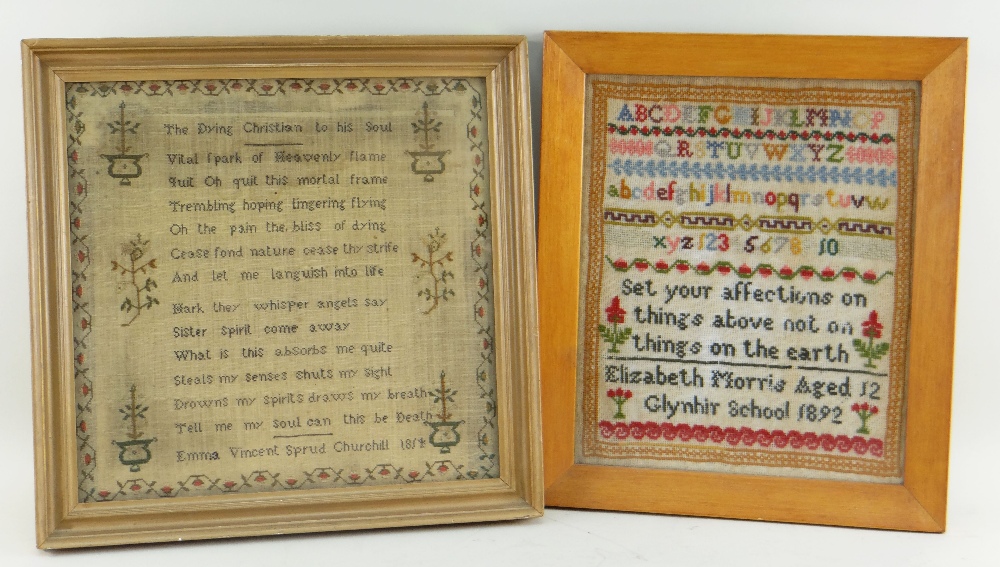 The Dying Christian to his Soul
Vital spark of Heavenly flame
Quit Oh quit this mortal frame
Trembling hoping lingering flying
Oh the pain the bliss of dying
Cease fond nature cease thy strife
And let me languish into life
Hark they whisper angels say
Sister Spirit come away
What is this absorbs me quite
Steals my senses shuts my sight
Drowns my spirits draws my breath
Tell me my soul can this be Death
Emma Vincent Sprud Churchill
ABCDEFGHIJKLMNOP
QRSTUVWXYZ
abcdefghijklmnopqrstuvw
xyz 123 5678 10
Set your affections on
things above not on
things on the earth
Elizabeth Morris Aged 12
Glynhir School 1892